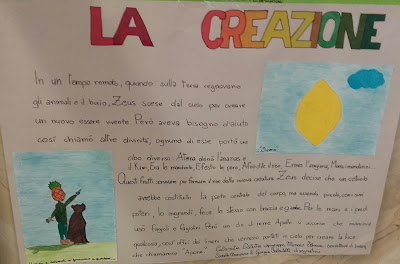 LA CREAZIONE
In un tempo remoto, quando sulla terra regnavano
gli animali e il buio, Zeus scese dal cielo per creare
un nuovo essere vivente. Però aveva bisogno d'aiuto
così chiamò altre divinità, ognuno di esse portò un
cibo diverso: Atena donò l'ananas e
il Kiwi, Era le mandorle, Efesto le pere, Afrodite il riso, Ermes l'anguria,
Questi frutti servivano per formare il viso della nuova creatura. Zeus decise che un cetriolo
avrebbe costituito la parte centrale del corpo, ma essendo piccolo, con i suoi
poteri, lo ingrandì, fece lo stesso con braccia e gambe. Per le mani e i piedi
usò fagioli e fagiolini. Però un dio di nome Apollo si accorse che mancava
qualcosa, così offrì dei limoni che vennero portati in cielo per creare la luce
che chiamarono